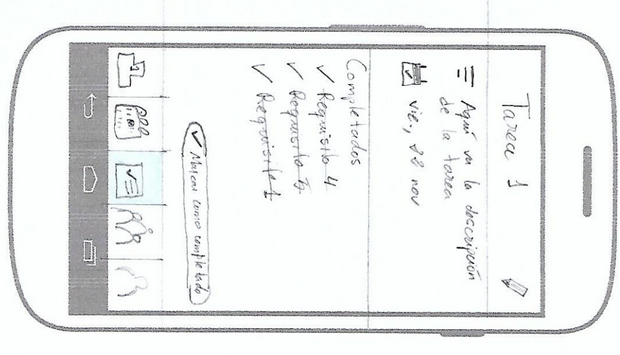 Tarea 1
Aquí va la descripción
de la tarea
vie., 22 nov
Completados
Requisito 4
Requisito 3
Requisito 1
Marcar como completado